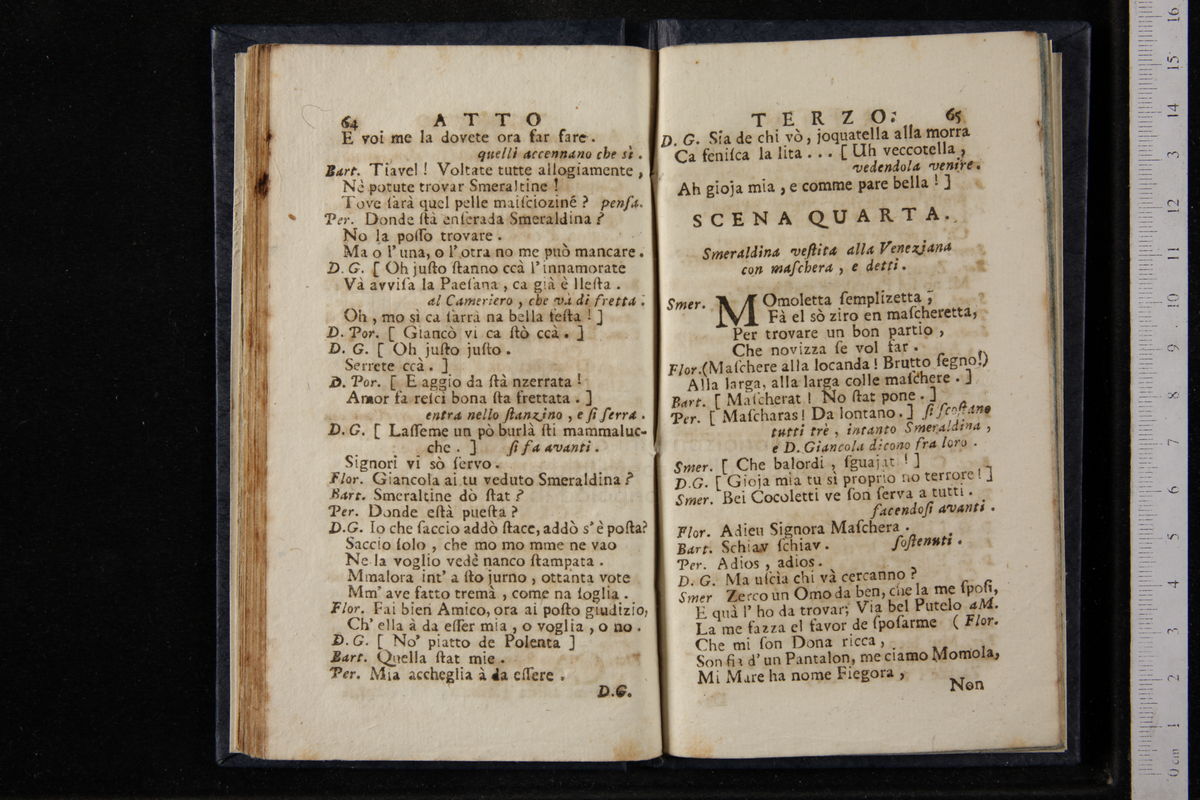 64 ATTO
E voi me la dovete ora far fare.
quelli accennano che sì.
Bart. Tiavel! Voltate tutte allogiamente,
Nè potute trovar Smeraltine!
Tove ſarà quel pelle maiſcioziné? penſa.
Per. Donde ſtà enſerada Smeraldina?
No la poſſo trovare.
Ma o l'una, o l'otra no me può mancare.
D. G. [ Oh juſto ſtanno ccà l'innamorate
Và avviſa la Paeſana, ca già è lleſta.
al Cameriero, che và di fretta.
Oh, mo sì ca ſarrà na bella feſta! ]
D. Por. [ Giancò vi ca ſtò ccà. ]
D. G. [ Oh juſto juſto.
Serrete ccà. ]
D. Por. [ E aggio da ſtà nzerrata!
Amor fa reſci bona ſta frettata. ]
entra nello ſtanzino, e ſi ſerra.
D. G. [ Laſſeme un pò burlà ſti mammaluc-
che. ] ſi fa avanti.
Signori vi sò ſervo.
Flor. Giancola ai tu veduto Smeraldina?
Bart. Smeraltine dò ſtat?
Per. Donde eſtà pueſta?
D.G. Io che ſaccio addò ſtace, addò s'è poſta?
Saccio ſolo, che mo mo mme ne vao
Ne la voglio vedè nanco ſtampata.
Mmalora int' a ſto jurno, ottanta vote
Mm' ave fatto tremà, come na foglia.
Flor. Fai bien Amico, ora ai poſto giudizio,
Ch' ella à da eſſer mia, o voglia, o no.
D. G. [ No' piatto de Polenta ]
Bart. Quella ſtat mie.
Per. Mia accheglia à da eſſere.
D.G.
TERZO. 65
D. G. Sia de chi vò, joquatella alla morra
Ca feniſca la lita... [ Uh veccotella,
vedendola venire.
Ah gioja mia, e comme pare bella! ]
SCENA QUARTA.
Smeraldina veſtita alla Veneziana
con maſchera, e detti.
Smer. MOmoletta ſemplizetta,
Fà el sò ziro en maſcheretta,
Per trovare un bon partio,
Che novizza ſe vol far.
Flor. (Maſchere alla locanda! Brutto ſegno!)
Alla larga, alla larga colle maſchere. ]
Bart. [ Maſcherat! No ſtat pone. ]
Per. [ Maſcharas! Da lontano. ] ſi ſcoſtano
tutti trè, intanto Smeraldina,
e D. Giancola dicono fra loro.
Smer. [ Che balordi, ſguajati! ]
D.G. [ Gioja mia tu sì proprio no terrore! ]
Smer. Bei Cocoletti ve ſon ſerva a tutti.
facendoſi avanti.
Flor. Adieu Signora Maſchera.
Bart. Schiav ſchiav. ſoſtenuti.
Per. Adios, adios.
D. G. Ma uſcia chi và cercanno?
Smer Zerco un Omo da ben, che la me ſpoſi,
E quà l' ho da trovar; Via bel Putelo aM.
La me fazza el favor de ſpoſarme ( Flor.
Che mi ſon Dona ricca,
Son fia d'un Pantalon, me ciamo Momola,
Mi Mare ha nome Fiegora,
Non